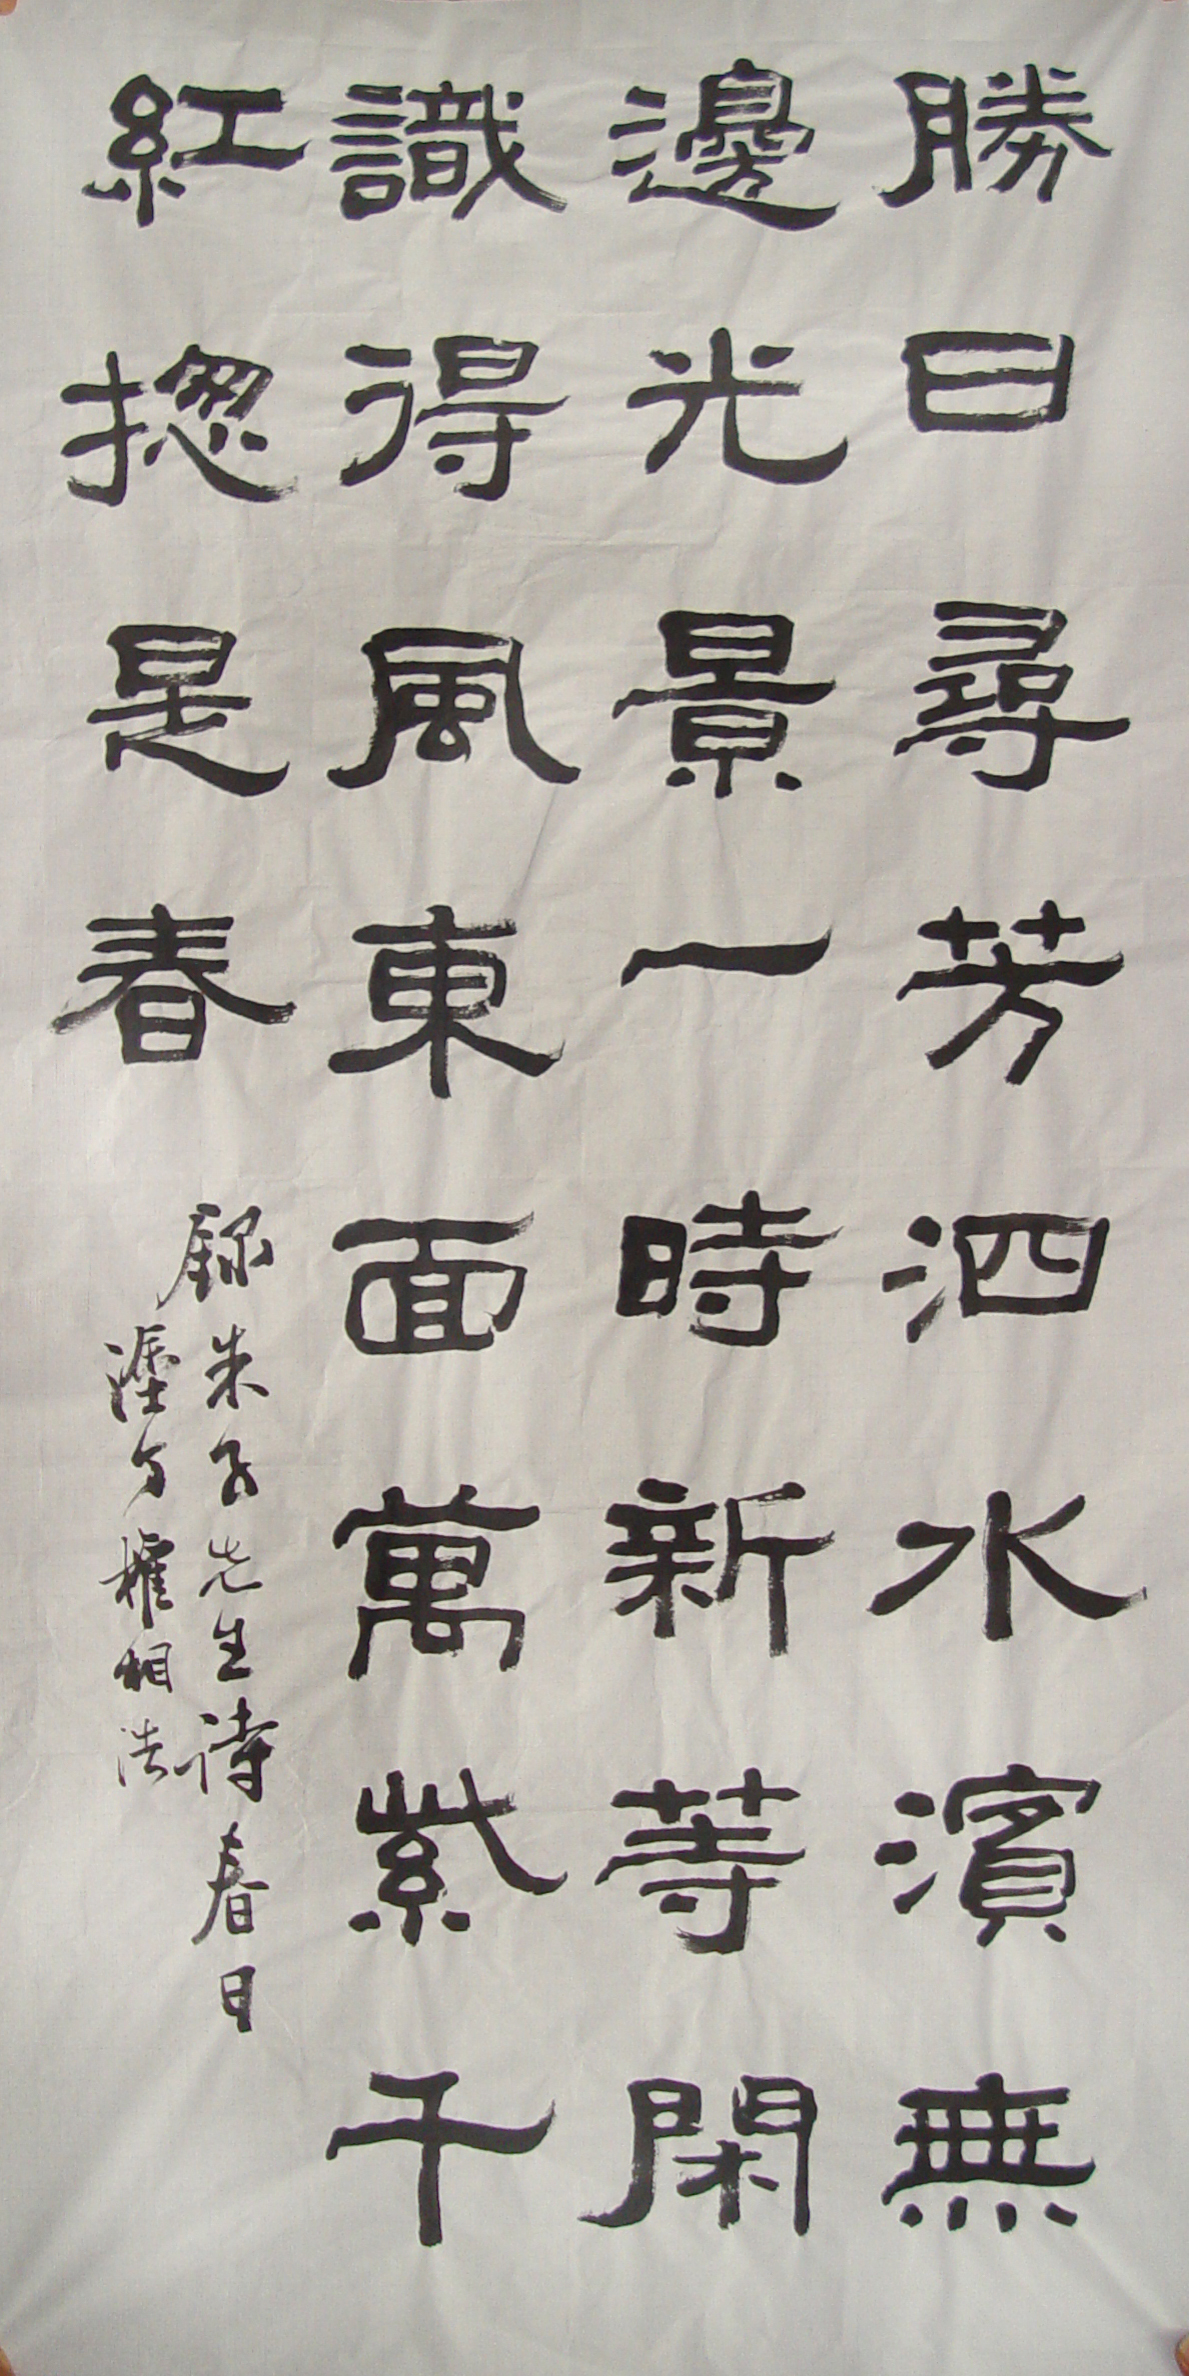 勝日尋芳泗水濱無
邊光景一時新等閑
識得風東面萬紫千
紅揔是春
録朱子先生詩春日
權相浩